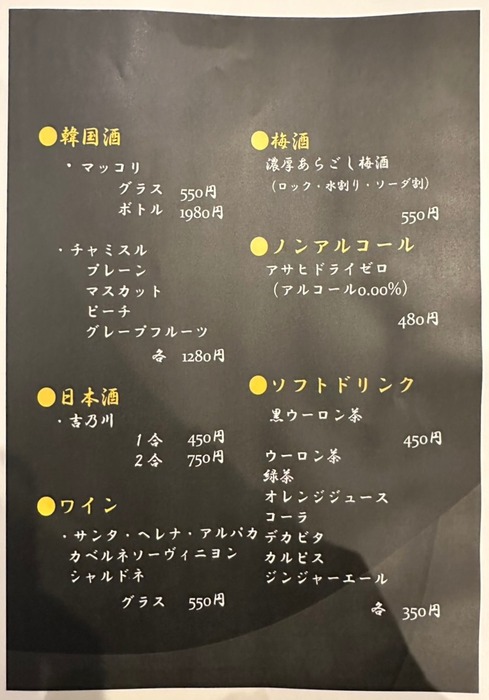 ●韓国酒
・マッコリ
グラス 550円
ボトル 1980円
・チャミスル
プレーン
マスカット
ピーチ
グレープフルーツ
各 1280円
●日本酒
・吉乃川
1合 450円
2合 750円
●ワイン
・サンタ・ヘレナ・アルパカ
カベルネソーヴィニヨン
シャルドネ
グラス 550円
●梅酒
濃厚あらごし梅酒
(ロック・水割り・ソーダ割)
550円
●ノンアルコール
アサヒドライゼロ
(アルコール0.00%)
480円
●ソフトドリンク
黒ウーロン茶
450円
ウーロン茶
緑茶
オレンジジュース
コーラ
デカビタ
カルピス
ジンジャーエール
各 350円